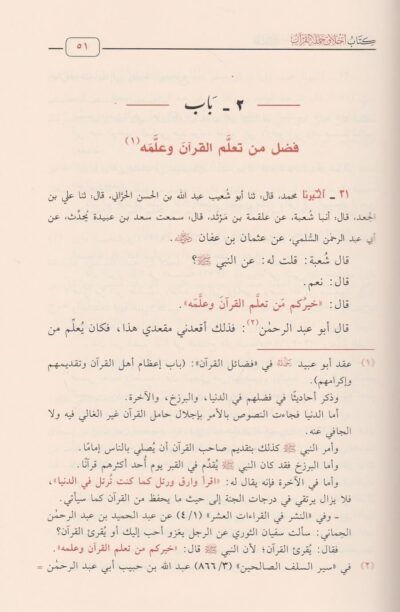 كِتَابُ أَخْلَاقِ حَمَلَةِ القُرْآنِ
٥١
٢ - بَاب
فضل من تعلَّم القرآنَ وعلَّمه(١)
٢١ - أخبرنا محمد، قال: ثنا أبو شُعيب عبد الله بن الحسن الحرَّاني، قال: ثنا علي بن
الجعد، قال: أنبأ شُعبة، عن علقمة بن مَرْثد، قال: سمعت سعد بن عبيدة يُحدِّث، عن
أبي عبد الرحمٰن السُّلمي، عن عثمان بن عفان رضي الله عنه.
قال شُعبة: قلت له: عن النبي ﷺ؟
قال: نعم.
قال: «خيرُكم مَن تعلَّم القرآنَ وعلَّمَه».
قال أبو عبد الرحمٰن(٢): فذلك أقعدني مقعدي هذا، فكان يُعلِّم من
(١) عقد أبو عبيد رحمه الله في «فضائل القرآن»: (باب إعظام أهل القرآن وتقديمهم
وإكرامهم).
وذكر أحاديثًا في فضلهم في الدنيا، والبرزخ، والآخرة.
أما الدنيا فجاءت النصوص بالأمر بإجلال حامل القرآن غير الغالي فيه ولا
الجافي عنه.
وأمر النبي ﷺ كذلك بتقديم صاحب القرآن أن يُصلي بالناس إمامًا.
وأما البرزخ فقد كان النبي ﷺ يُقدِّم في القبر يوم أُحد أكثرهم قرآنًا.
وأما في الآخرة فإنه يقال له: «اقرأ وارق ورتل كما كنت تُرتل في الدنيا»،
فلا يزال يرتقي في درجات الجنة إلى حيث ما يحفظ من القرآن كما سيأتي.
- وفي «النشر في القراءات العشر» (٤/١) عن عبد الحميد بن عبد الرحمٰن
الحِماني: سألت سفيان الثوري عن الرجل يغزو أحب إليك أو يُقرئ القرآن؟
فقال: يُقرئ القرآن؛ لأن النبي ﷺ قال: «خيركم من تعلم القرآن وعلمه».
(٢) في «سير السلف الصالحين» (٨٦٦/٣) عبد الله بن حبيب أبي عبد الرحمٰن =